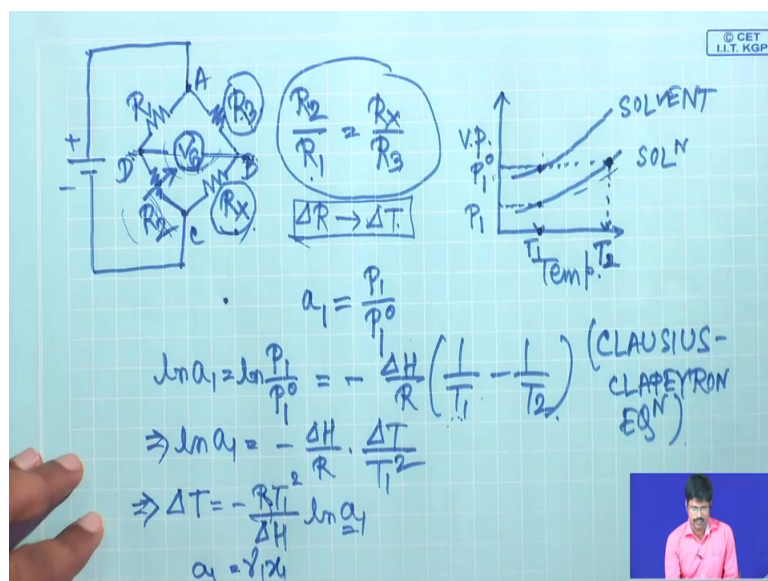 © CET
I.I.T. KGP
A
R
R3
+
-
D
VG
B
R2
Rx
C
R2/R1 = Rx/R3
ΔR → ΔT.
V.P.
P1⁰
P1
SOLVENT
SOLᴺ
T1
T2
Temp.
a1 = P1/P1⁰
ln a1 = ln P1/P1⁰ = - ΔH/R (1/T1 - 1/T2) (CLAUSIUS-
CLAPEYRON
EQᴺ)
⇒ ln a1 = - ΔH/R . ΔT/T1²
⇒ ΔT = - RT1²/ΔH ln a1
a1 = γ1x1